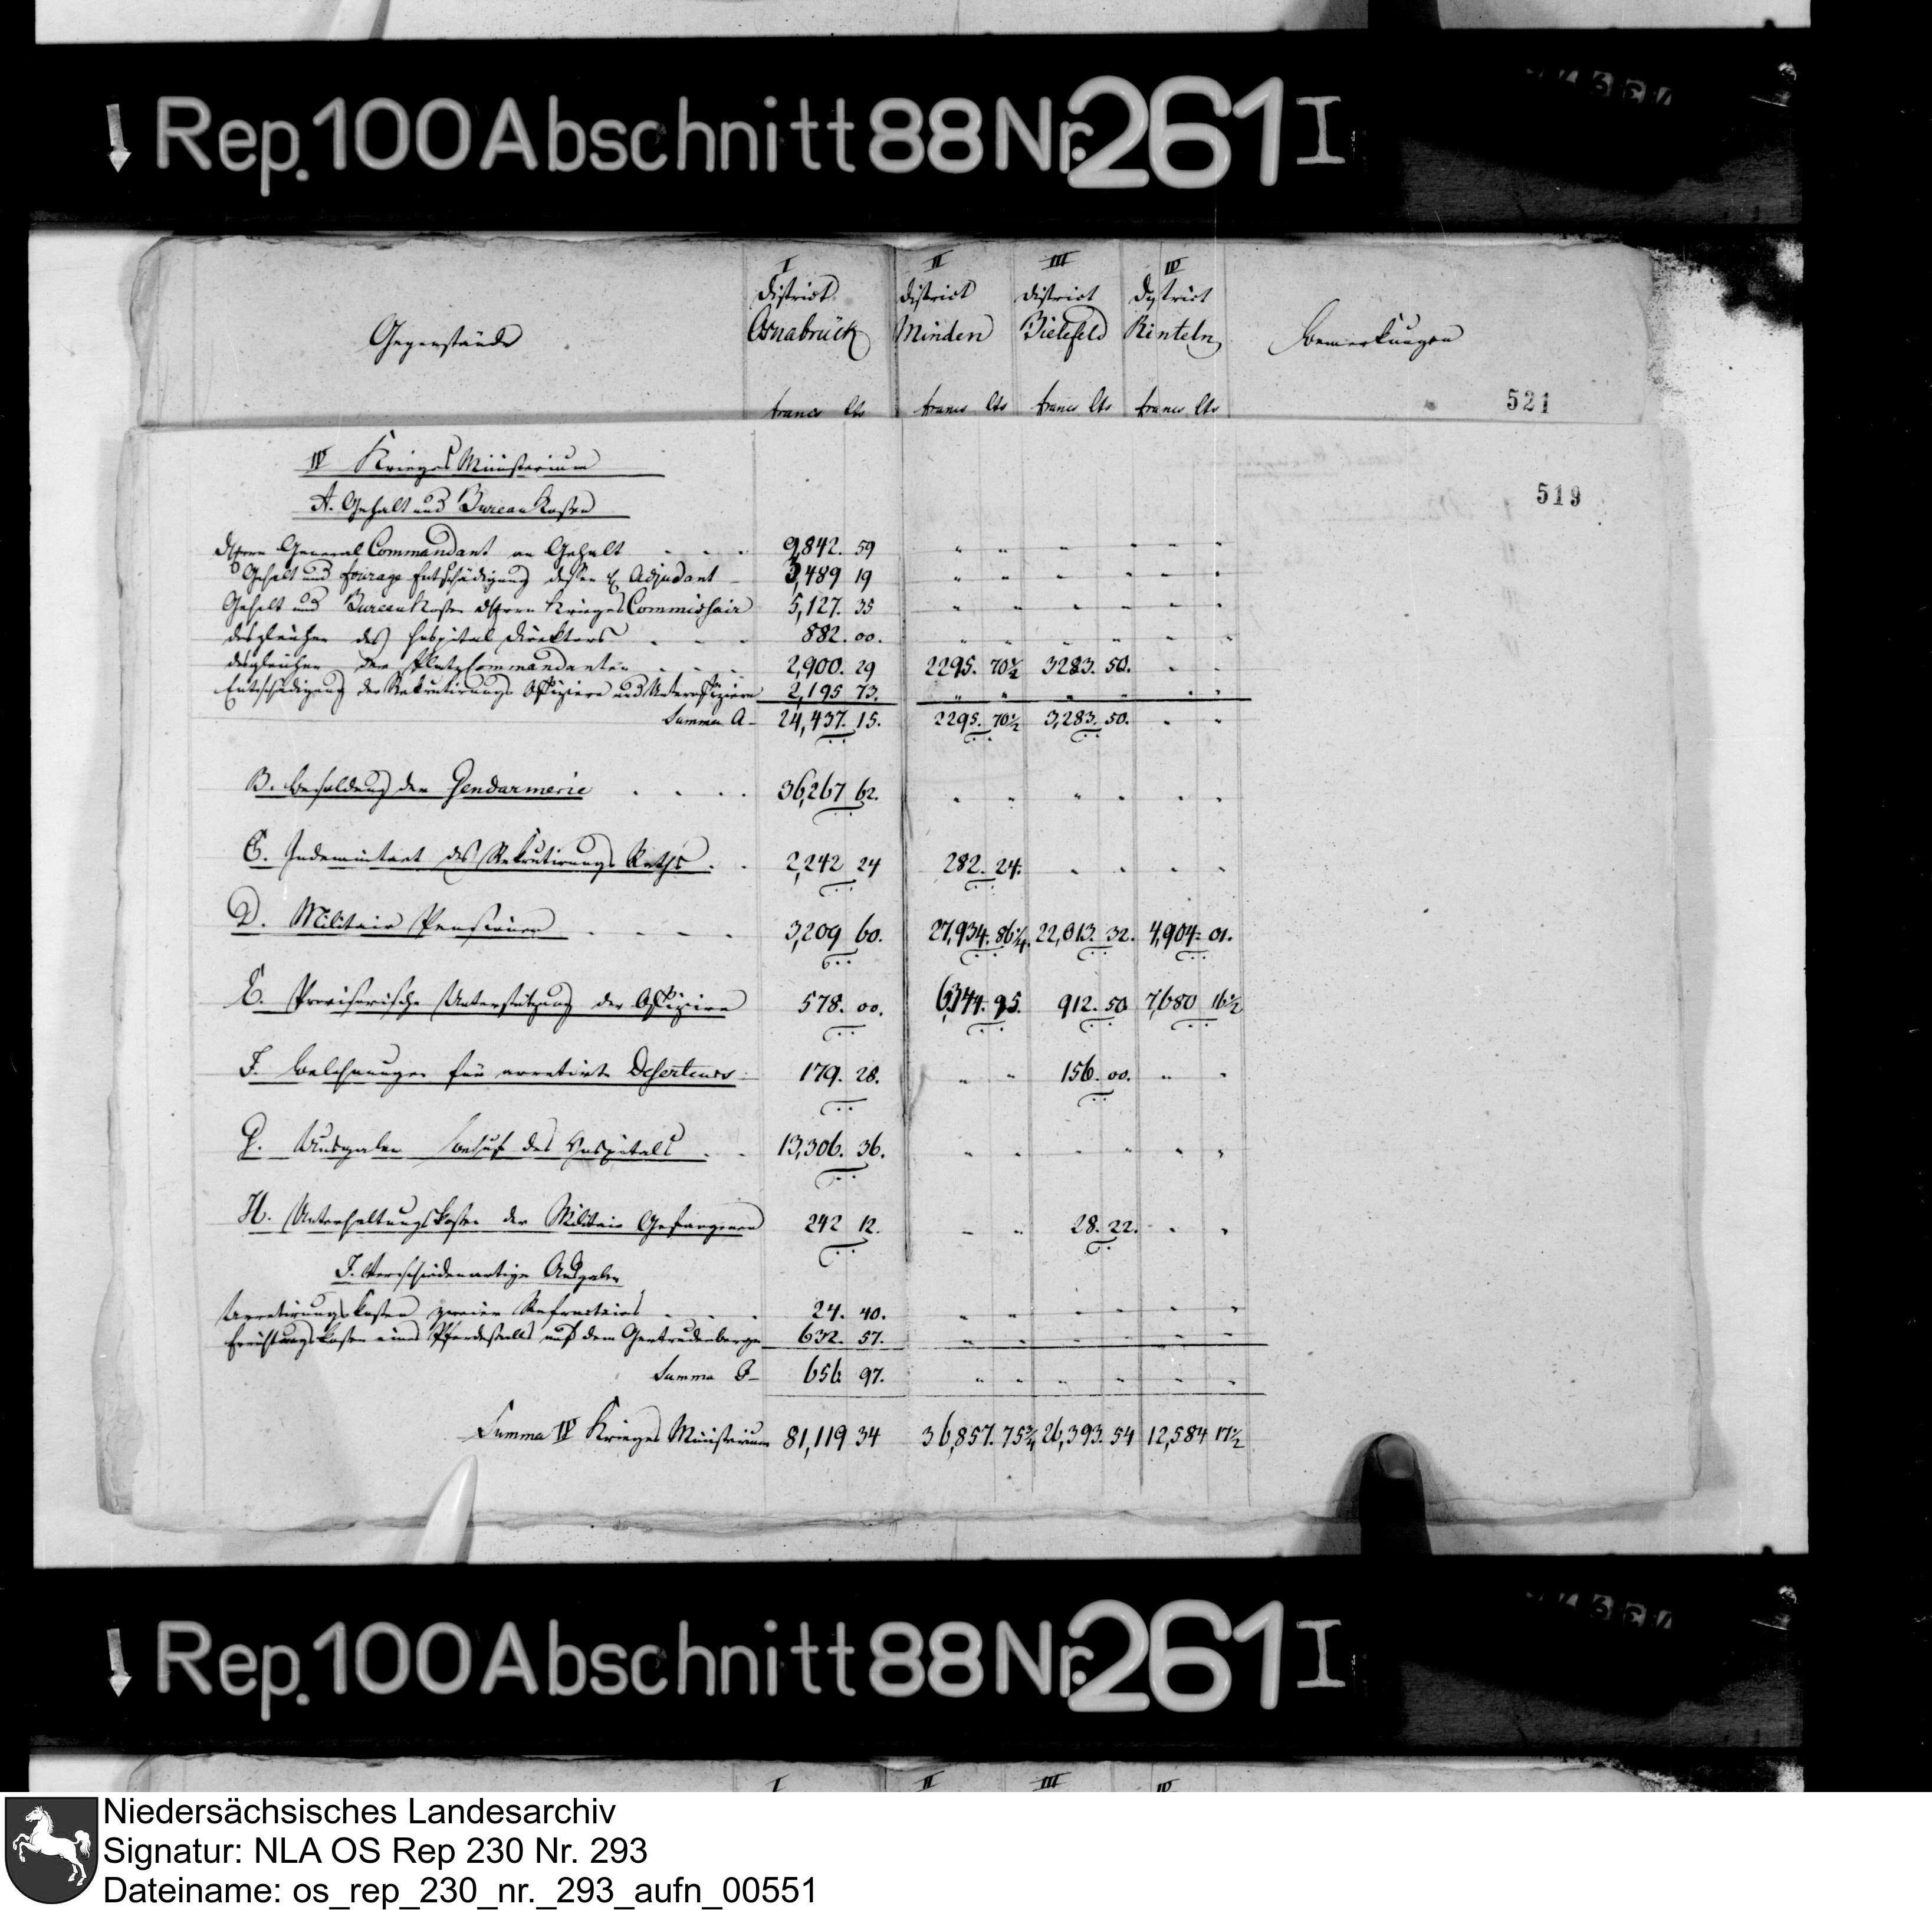 Rep. 100 Abschnitt 88 Nr. 261 I
I II III IV
District District District District
Gegenstände Osnabrück Minden Bielefeld Rinteln Bemerkungen
francs Cts francs Cts francs Cts francs Cts 521
IV Krieges Ministerium
519
A. Gehalt und Bureau Kosten
General Commandant an Gehalt 9,842. 59
Gehalt und fourage Entschädigung dessen Adjudant 3,489 19
Gehalt und Bureau Kosten Krieges Commissair 5,127. 35
desgleichen des Hospital Direktors 882. 00.
desgleichen der Platz Commandanten 2,900. 29 2295. 70½ 3283. 50.
Entschädigung der Rekrutirungs Offiziere und Unteroffiziere 2,195 73.
Summa A 24,437. 15. 2295. 70½ 3,283. 50.
B. Besoldung der Gendarmerie 36,267 62.
C. Indemnitaet des Rekrutirungs Raths 2,242 24 282. 24.
D. Militair Pensionen 3,209 60. 27,934. 86¼ 22,013. 32. 4,904. 01.
E. Provisorische Unterstützung der Offiziere 578. 00. 6344. 95. 912. 50 7,680 16½
F. Belohnungen für arretirte Deserteurs 179. 28. 156. 00.
G. Ausgaben behuf des Hospitals 13,306. 36.
H. Unterhaltungskosten der Militair Gefangenen 242 12. 28. 22.
J. Verschiedenartige Ausgaben
Arretirungskosten zweier Refractairs 24. 40.
Errichtungskosten eines Pferdestalls auf dem Gertrudenberge 632. 57.
Summa 656 97.
Summa IV Krieges Ministerium 81,119 34 36,857. 75¾ 26,393. 54 12,584 17½
Rep. 100 Abschnitt 88 Nr. 261 I
I II III IV
Niedersächsisches Landesarchiv
Signatur: NLA OS Rep 230 Nr. 293
Dateiname: os_rep_230_nr._293_aufn_00551